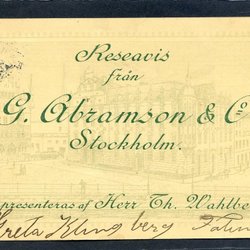 Reseavis
från
G. Abramson & Co
Stockholm.
presenteras af Herr Th. Wahlbe
Greta Klingberg